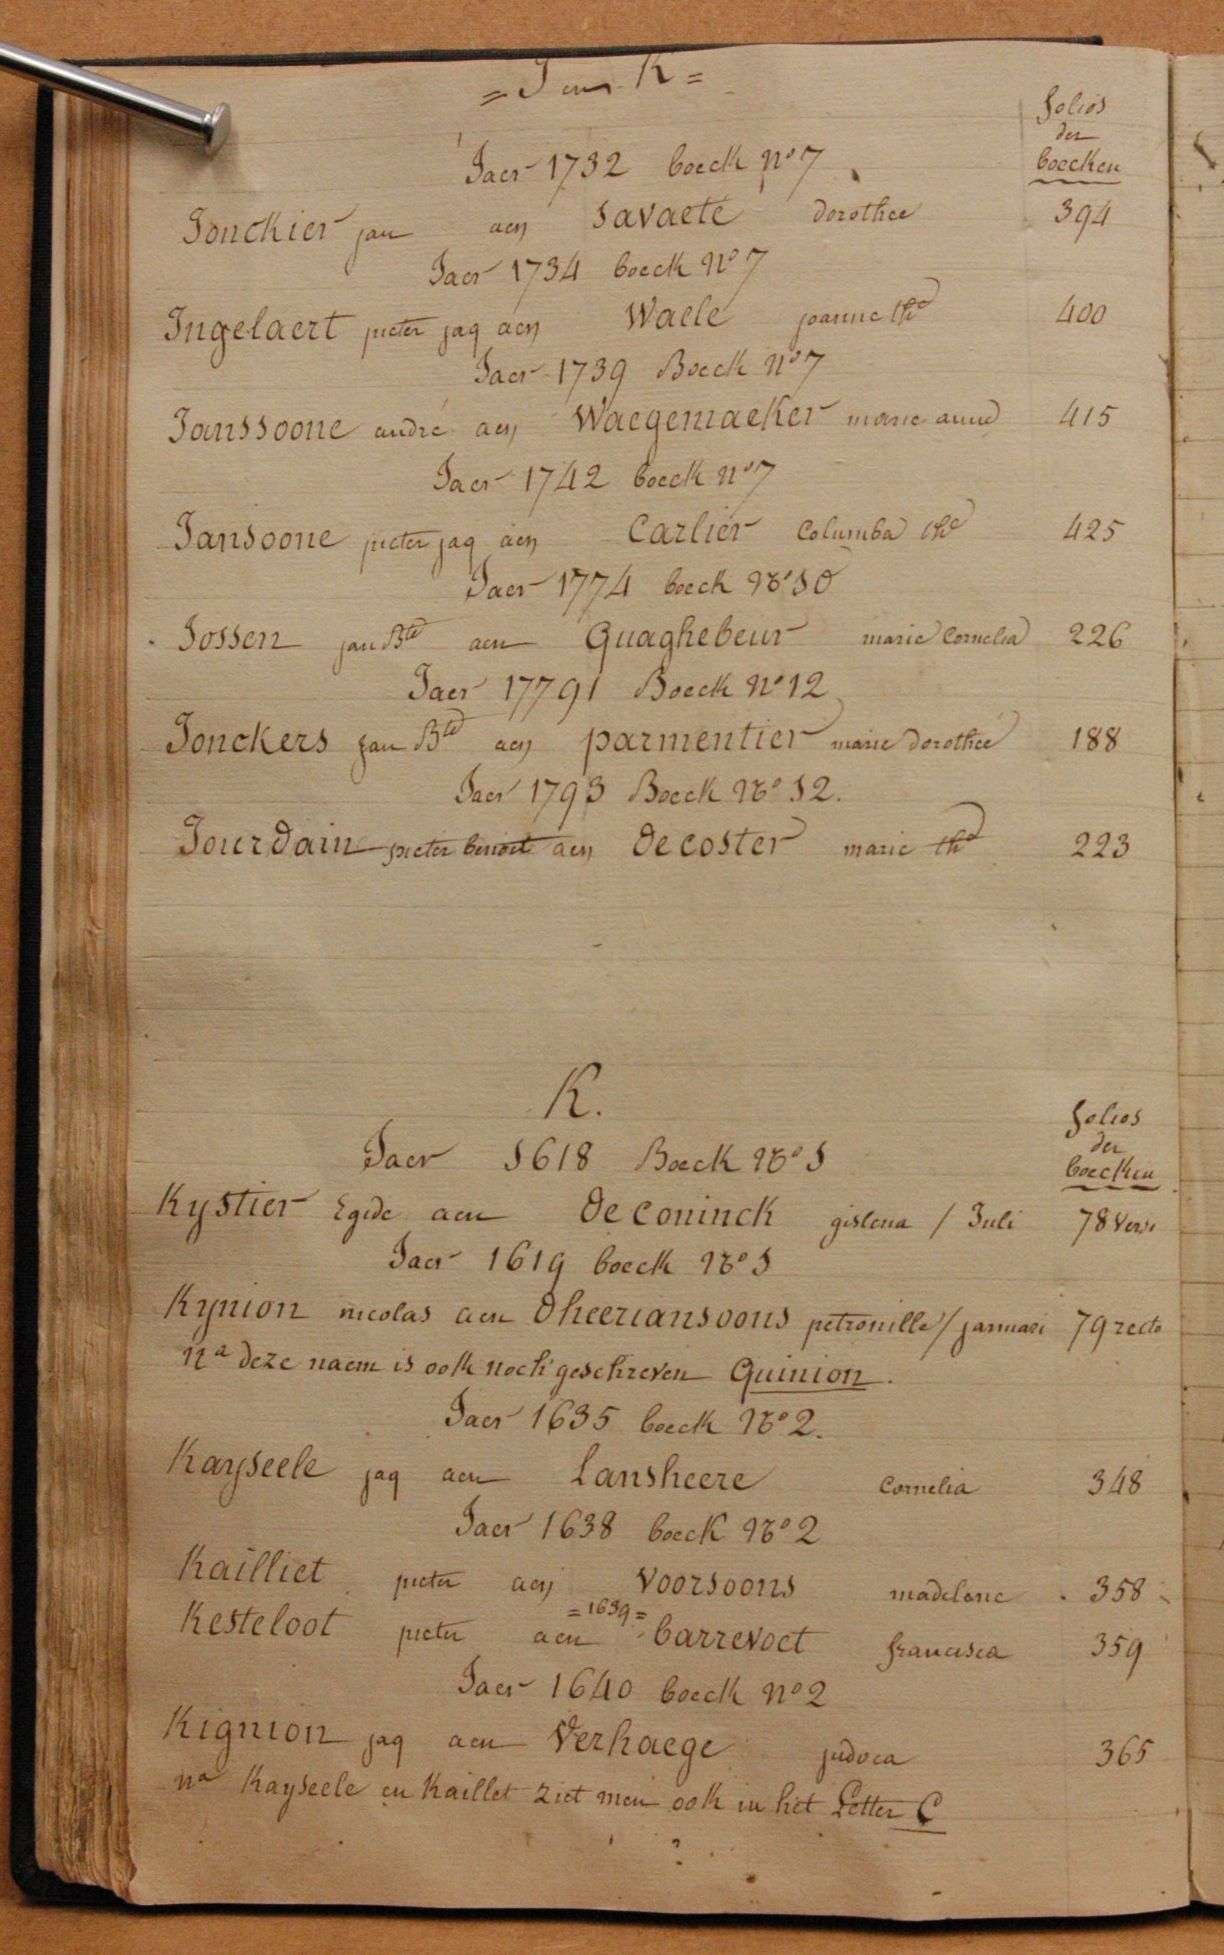 = J en K =
folios
der
boecken
Jaer 1732 boeck No 7
Jonckier jan aen Savaete dorothee 394
Jaer 1734 boeck No 7
Ingelaert pieter jaq aen Waele joanne thé 400
Jaer 1739 Boeck No 7
Janssoone andré aen Waegemaeker marie anne 415
Jaer 1742 boeck No 7
Jansoone pieter jaq aen Carlier Columba thé 425
Jaer 1774 boeck No 10
Jossen jan Bte aen Quaghebeur marie Cornelia 226
Jaer 17791 Boeck No 12
Jonckers jan Bte aen parmentier marie dorothée 188
Jaer 1793 Boeck No 12.
Jourdain pieter benoit aen decoster marie thé 223
K.
folios
der
boecken
Jaer 1618 Boeck No 1
Kystier Egide aen deconinck gislena / Juli 78 verso
Jaer 1619 boeck No 1
Kynion nicolas aen dheeriansoons petronille / januari 79 recto
Na deze naem is ook noch geschreven Quinion.
Jaer 1635 boeck No 2.
Kayseele jaq aen Lansheere Cornelia 348
Jaer 1638 boeck No 2
Kailliet pieter aen voorsoons madelene 358
= 1639 =
Kesteloot pieter aen barrevoet francisca 359
Jaer 1640 boeck No 2
Kignion jaq aen Verhaege judoca 365
na Kayseele en Kaillet ziet men ook in het Letter C